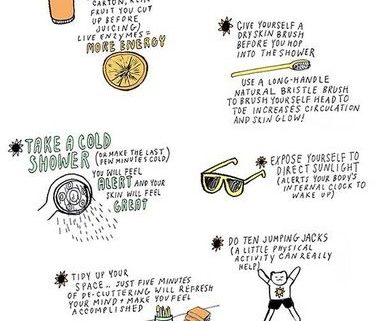 CARTON, REAL
FRUIT YOU CUT
UP BEFORE
JUICING)
LIVE ENZYMES =
MORE ENERGY
GIVE YOURSELF A
DRY SKIN BRUSH
BEFORE YOU HOP
INTO THE SHOWER
USE A LONG-HANDLE
NATURAL BRISTLE BRUSH
TO BRUSH YOURSELF HEAD TO
TOE INCREASES CIRCULATION
AND SKIN GLOW!
TAKE A COLD
SHOWER (OR MAKE THE LAST
FEW MINUTES COLD)
YOU WILL FEEL
ALERT AND YOUR
SKIN WILL FEEL
GREAT
EXPOSE YOURSELF TO
DIRECT SUNLIGHT
(ALERTS YOUR BODY'S
INTERNAL CLOCK TO
WAKE UP)
DO TEN JUMPING JACKS
(A LITTLE PHYSICAL
ACTIVITY CAN REALLY
HELP)
TIDY UP YOUR
SPACE.. JUST FIVE MINUTES
OF DE-CLUTTERING WILL REFRESH
YOUR MIND + MAKE YOU FEEL
ACCOMPLISHED